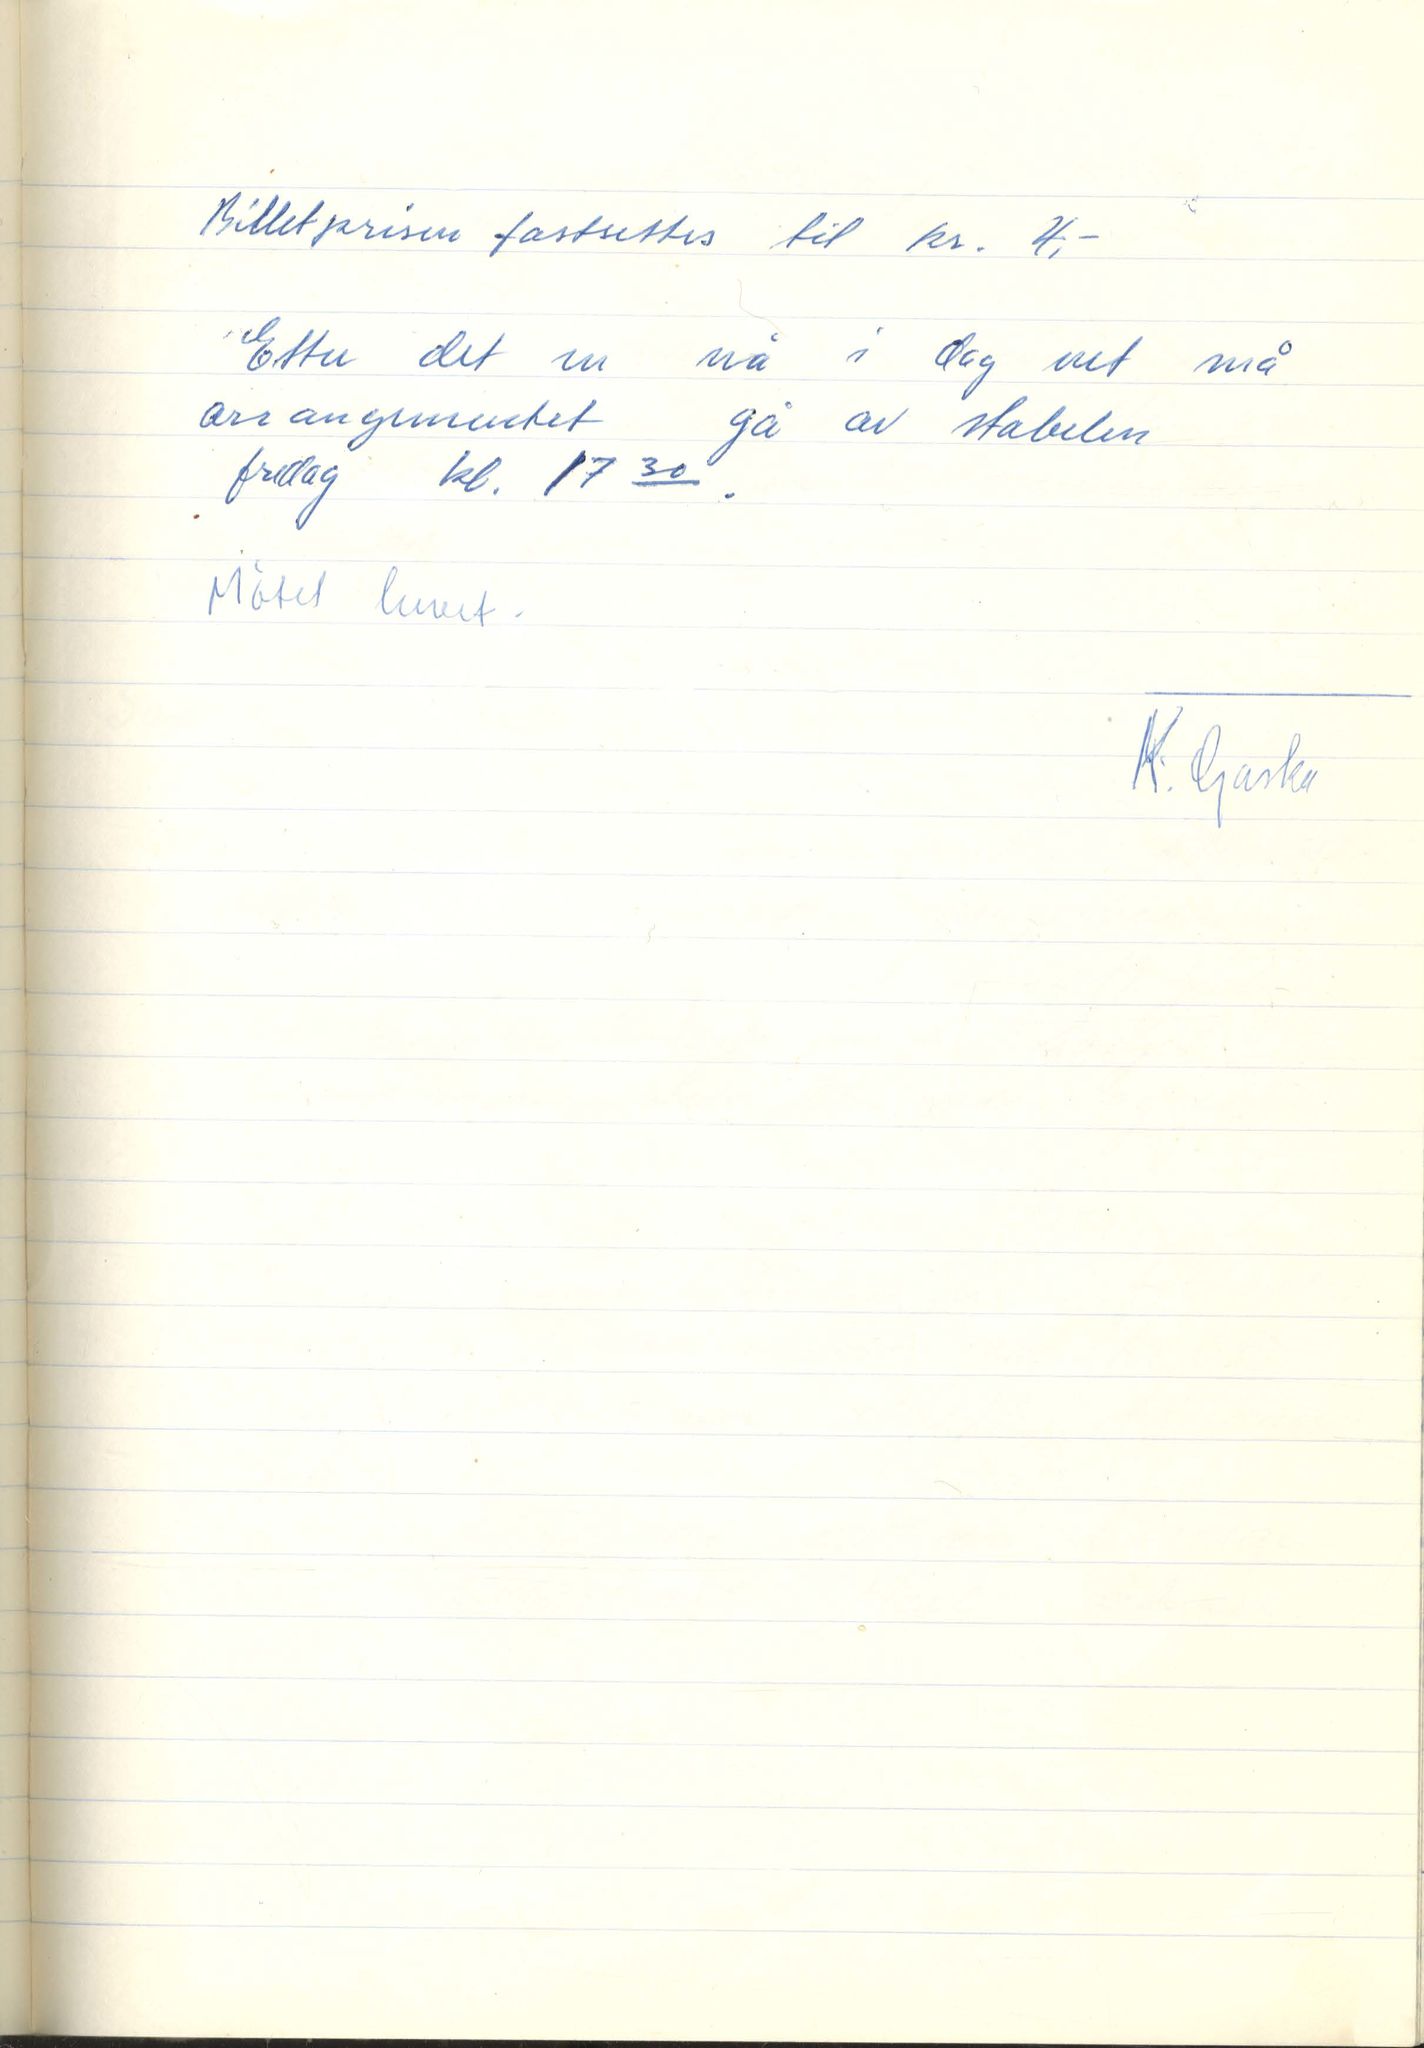 Billetprisen fastsettes til kr. 4,-
Etter det en nå i dag vet må
arrangementet gå av stabelen
fredag kl. 17 30.
Møtet hevet.
K.